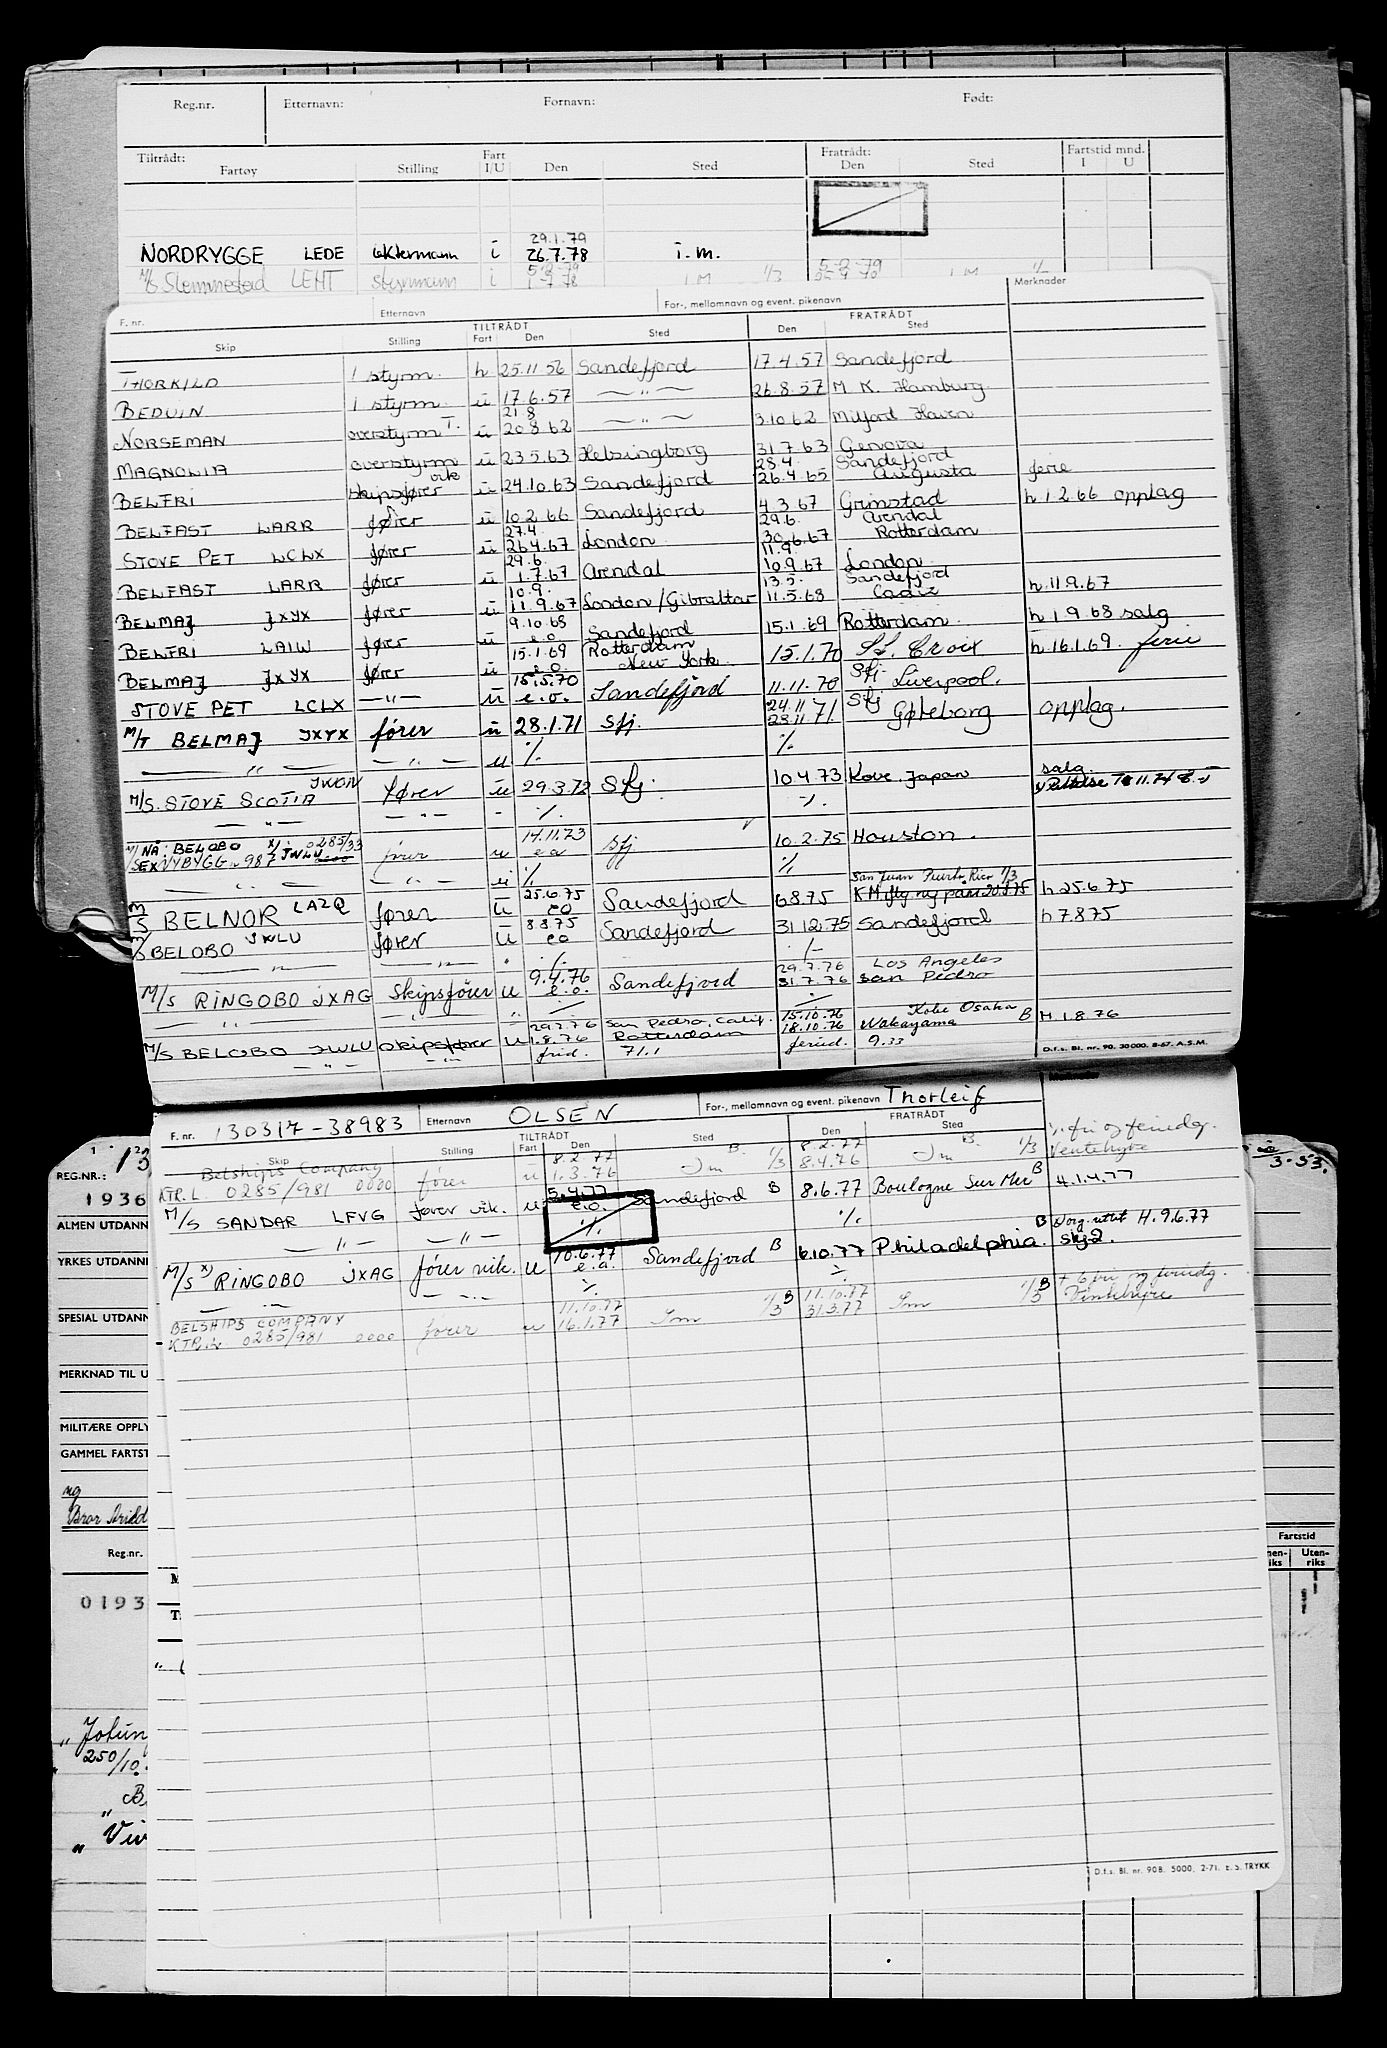 Reg.nr. Etternavn: Fornavn: Født:
Tiltrådt: Fart Fratrådt: Fartstid mnd.
Fartøy Stilling I/U Den Sted Den Sted I U
29.1.79
NORDRYGGE LEDE i 26.7.78 i.m.
5-2-79 5-2-79
M/S Slemmestad LEHT styrmann i 1-7-78 I M 1/3 I M
F. nr. Etternavn For-, mellomnavn og event. pikenavn Merknader
TILTRÅDT FRATRÅDT
Skip Stilling Fart Den Sted Den Sted
THORKILD 1 styrm. h 25.11.56 Sandefjord 17.4.57 Sandefjord
BEDUIN 1 styrm. u 17.6.57 — " — 26.8.57 M K. Hamburg.
21 8
NORSEMAN overstyrm T. u 20 8 62 — " — 3.10.62 Milford Haven
MAGNOLIA overstyrm u 23.5.63 Helsingborg 31.7.63 Genova
vik 28.4. Sandefjord
BELFRI skipsfører u 24.10.63 Sandefjord 26.4.65 Augusta ferie
BELFAST LARR fører u 10.2.66 Sandefjord 4.3.67 Grimstad h 1.2.66 opplag
27.4. 29.6. Arendal
STOVE PET LCLX fører u 26.4.67 London 30.6.67 Rotterdam
29.6. 11.9.
BELFAST LARR fører u 1.7.67 Arendal 10.9.67 London
10.9. 13.5. Sandefjord
BELMAJ JXYX fører u 11.9.67 London/Gibraltar 11.5.68 Cadiz h.11.9.67
9.10.68
BELFRI LAIW fører u e.o Sandefjord 15.1.69 Rotterdam h 1.9.68 salg
15.1.69 Rotterdam
BELMAJ JXYX fører u e.o. New York 15.1.70 St. Croix h.16.1.69. ferie
15.5.70 Sfj
STOVE PET LCLX — " — u e.o. Sandefjord 11.11.70 Liverpool.
24.11. Sfj
M/T BELMAJ JXYX fører u 28.1.71 Sfj. 23.11.71 Gøteborg opplag.
— " — — " — u %. %
JWON salg
M/S. STOVE SCOTIA fører u 29.3.72 Sfj. 10.4.73 Kove. Japan
— " — — " — - %. %.
14.11.73
M/ NÅ: BELOBO X) 0285/33
/SEX NYBYGG. 987 JWLU fører u e.o Sfj 10.2.75 Houston.
— " — — " — u % %
25.6.75 San Juan Puerto Rico 1/3
M/S BELNOR LAZQ fører u eo Sandefjord 6.8.75 h 25.6.75
8.8.75
M/S BELOBO JWLU fører u eo Sandefjord 31.12.75 Sandefjord h 7.8.75
— " — — " — " %. %
9.4.76 29.7.76 Los Angeles
M/S RINGOBO JXAG Skipsfører u e.o. Sandefjord 31.7.76 San Pedro
— " — " " % %
29.7.76 San Pedro, Calif. 15.10.76 Kobe Osaka
M/S BELOBO JWLU skipsfører u 1.8.76 Rotterdam 18.10.76 Wakayama B H.1.8.76
— " — — " — frid. 71.1 feried. 9.33
D.f.s. Bl. nr. 90. 30000. 8-67. A.S.M.
F. nr. 130317-38983 Etternavn OLSEN For-, mellomnavn og event. pikenavn Thorleif Merknader
TILTRÅDT FRATRÅDT
Skip Stilling Fart Den Sted Den Sted
Belships Company 8.2.77 B. 8.2.77 B. %. fri og feriedg.
KTR.L. 0285/981 0000 fører u 1.3.76 Im 1/3 8.4.76 Im 1/3 Ventehyre
5.4.77
M/S SANDAR LFVG fører vik. u e.o. Sandefjord B 8.6.77 Boulogne Sur Mer B H.1.4.77
— " — — " — %. %. H.9.6.77
10.6.77
M/S X) RINGOBO JXAG fører vik. u e.a. Sandefjord B 6.10.77 Philadelphia. B Skj2.
— " — — " — %. % + 6 fri og feriedg.
BELSHIPS COMPANY 11.10.77 11.10.77
KTR.L. 0285/981 0000 fører u 16.1.77 Im 1/3 B 31.3.77 Im 1/3 B Ventehyre
D.f.s. Bl. nr. 90B. 5000. 2-71. E.S. TRYKK
REG.NR.: 13
1936
ALMEN UTDANN
YRKES UTDANNI
SPESIAL UTDANN
MERKNAD TIL U
MILITÆRE OPPLY
GAMMEL FARTST
Reg.nr.
0193
3-53.
Fartstid
Uten-
riks
250/10